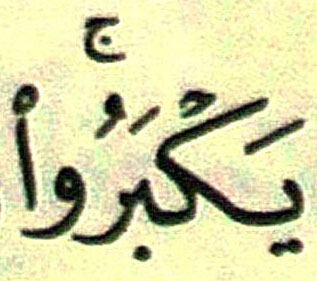 يَكْبَرُوا۟ۚ